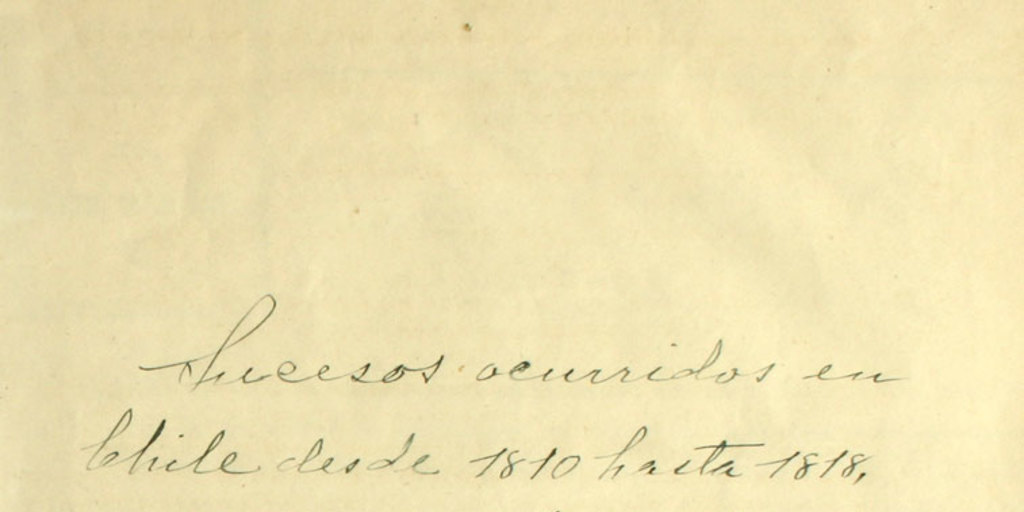 Sucesos ocurridos en
Chile desde 1810 hasta 1818,